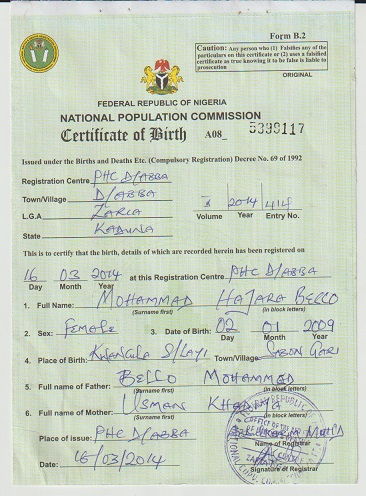 Form B.2
Caution: Any person who (1) Falsifies any of the
particulars on this certificate or (2) uses a falsified
certificate as true knowing it to be false is liable to
prosecution
ORIGINAL
FEDERAL REPUBLIC OF NIGERIA
NATIONAL POPULATION COMMISSION
Certificate of Birth A08_ 5399117
Issued under the Births and Deaths Etc. (Compulsory Registration) Decree No. 69 of 1992
Registration Centre PHC D/ABBA
Town/Village D/ABBA
L.G.A ZARIA
State KADUNA
2014 414
Volume Year Entry No.
This is to certify that the birth, details of which are recorded herein has been registered on
16 03 2014 at this Registration Centre PHC D/ABBA
Day Month Year
1. Full Name: MOHAMMAD HAJARA BELLO
(Surname first) (in block letters)
2. Sex: FEMALE 3. Date of Birth: 02 01 2009
Day Month Year
4. Place of Birth: KWANGILA S/LAYI Town/Village: SABON GARI
5. Full name of Father: BELLO MOHAMMAD
(Surname first) (in block letters)
6. Full name of Mother: USMAN
(Surname first) (in block letters)
Place of issue: PHC D/ABBA
Name of Registrar
Date: 16/03/2014
Signature of Registrar